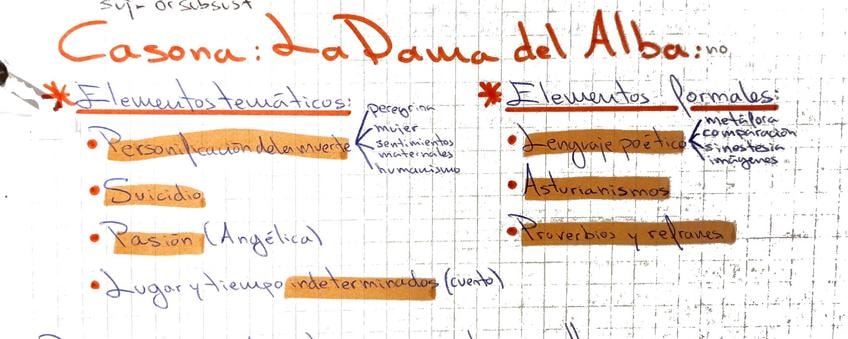 suj- or subsust
Casona: La Dama del Alba: no
* Elementos temáticos:
• Personificación de la muerte
peregrina
mujer
sentimientos
maternales
humanismo
• Suicidio
• Pasión (Angélica)
• Lugar y tiempo indeterminados (cuento)
* Elementos formales:
• Lenguaje poético
metáfora
comparación
sinestesia
imágenes
• Asturianismos
• Proverbios y refranes